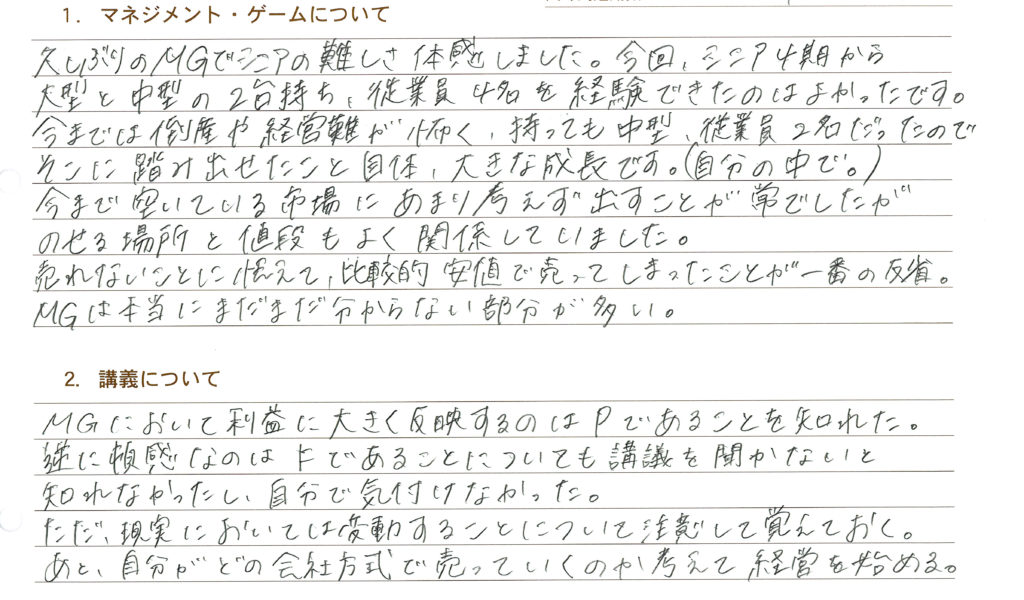 1. マネジメント・ゲームについて
久しぶりのMGでシニアの難しさ体感しました。今回、シニア4期から
大型と中型の2台持ち、従業員4名を経験できたのはよかったです。
今までは倒産や経営難が怖く、持っても中型、従業員2名だったので
そこに踏み出せたこと自体、大きな成長です。(自分の中で。)
今まで空いている市場にあまり考えず出すことが常でしたが
のせる場所と値段もよく関係していました。
売れないことに怯えて、比較的安値で売ってしまったことが一番の反省。
MGは本当にまだまだ分からない部分が多い。
2. 講義について
MGにおいて利益に大きく反映するのはPであることを知れた。
逆に鈍感なのはFであることについても講議を聞かないと
知れなかったし、自分で気付けなかった。
ただ、現実においては変動することについて注意して覚えておく。
あと、自分がどの会社方式で売っていくのか考えて経営を始める。